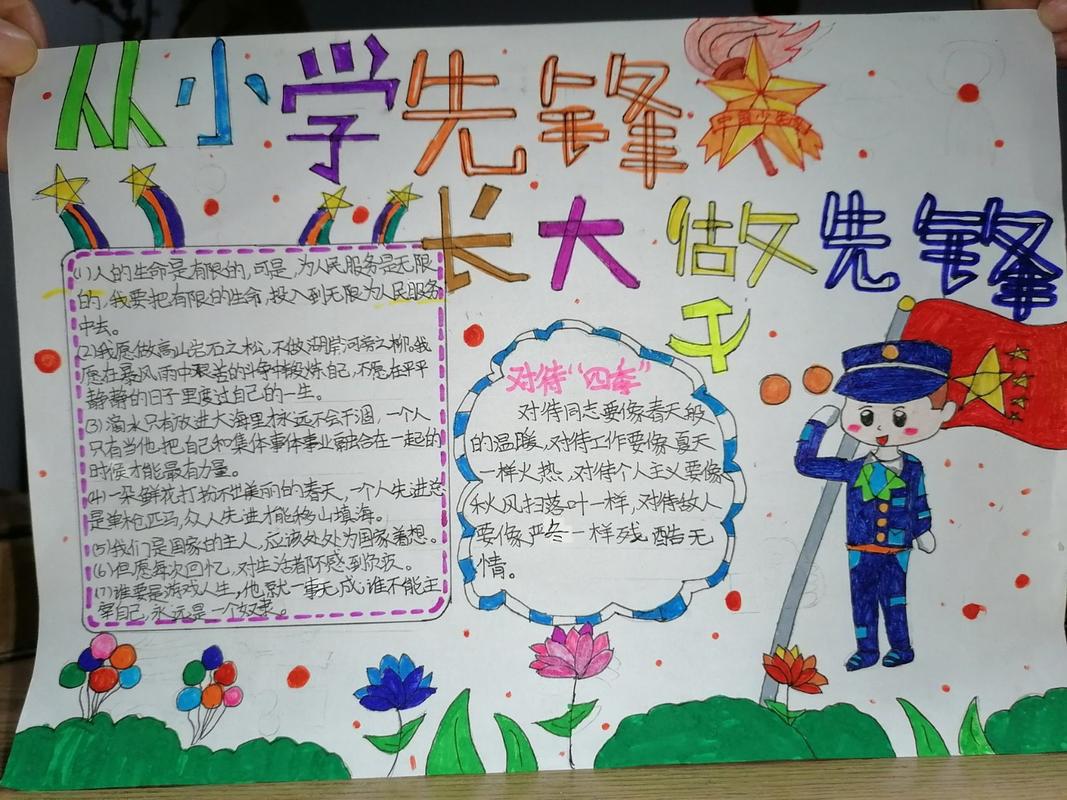 从小学先锋
中国少年先
长大做先锋
(1)人的生命是有限的,可是,为人民服务是无限
的,我要把有限的生命,投入到无限为人民服务
中去。
(2)我愿做高山岩石之松,不做湖岸河旁之柳。我
愿在暴风雨中艰苦的斗争中锻炼自己,不愿在平平
静静的日子里度过自己的一生。
(3)滴水只有放进大海里才永远不会干涸,一个人
只有当他把自己和集体事体事业融合在一起的
时候才能最有力量。
(4)一朵鲜花打扮不出美丽的春天,一个人先进总
是单枪匹马,众人先进才能移山填海。
(5)我们是国家的主人,应该处处为国家着想。
(6)但愿每次回忆,对生活都怀感到负疚。
(7)谁要是游戏人生,他就一事无成,谁不能主
宰自己,永远是一个奴隶。
对待“四季”
对待同志要像春天般
的温暖,对待工作要像夏天
一样火热,对待个人主义要像
秋风扫落叶一样,对待敌人
要像严冬一样残酷无
情。